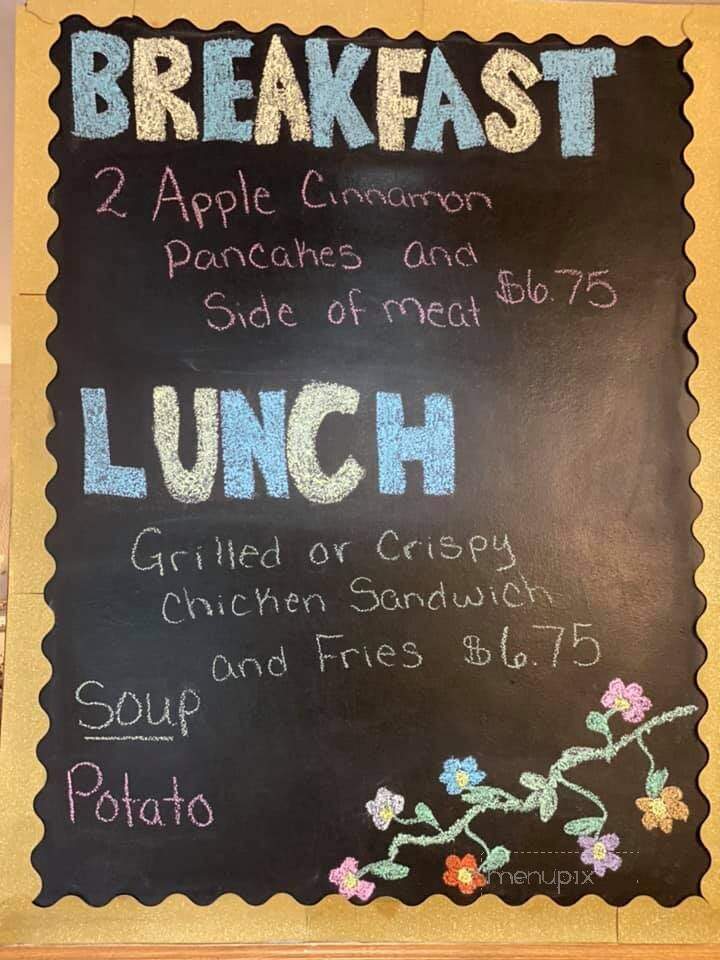 BREAKFAST
2 Apple Cinnamon
Pancakes and
Side of meat $6.75
LUNCH
Grilled or Crispy
Chicken Sandwich
and Fries $6.75
Soup
Potato
menupix